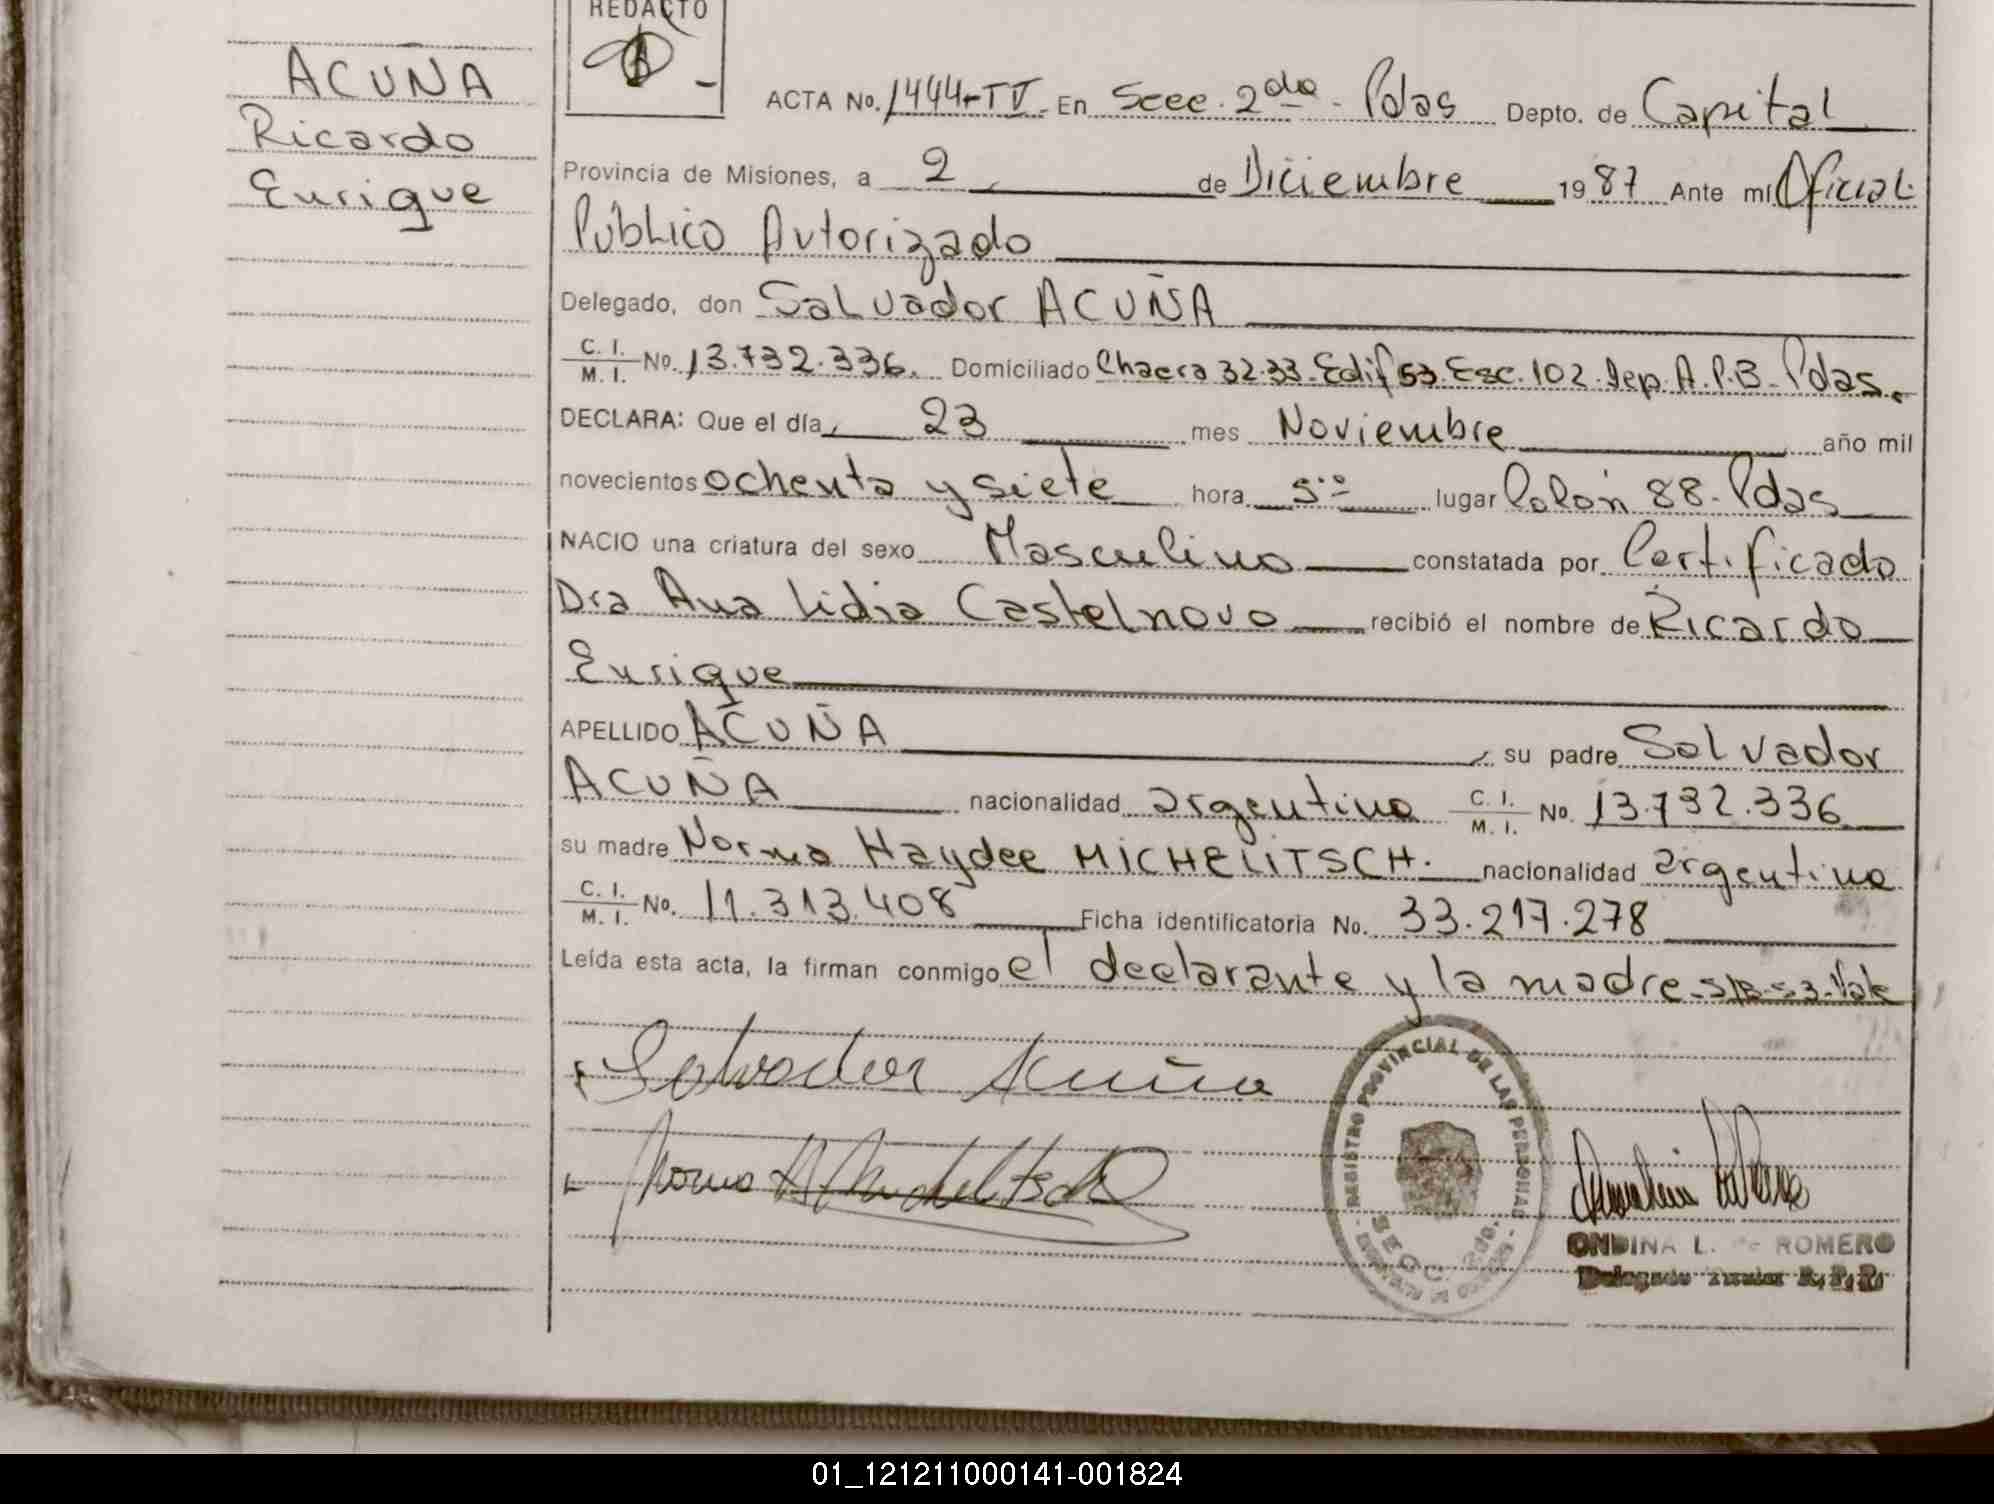 REDACTO
ACUÑA
Ricardo
Enrique
ACTA No. 1444-TV- En Secc. 2do - Pdas Depto. de Capital
Provincia de Misiones, a 2 de Diciembre 1987 Ante mí Oficial
Público Autorizado
Delegado, don Salvador ACUÑA
C. I. / M. I. No. 13.732.336. Domiciliado Chacra 32.33. Edif 53. Esc. 102. Dep. A. P.B. Pdas.
DECLARA: Que el día 23 mes Noviembre año mil
novecientos ochenta y siete hora 5:00 lugar Colón 88. Pdas
NACIO una criatura del sexo Masculino constatada por Certificado
Dra Ana Lidia Castelnovo recibió el nombre de Ricardo
Enrique
APELLIDO ACUÑA su padre Salvador
ACUÑA nacionalidad argentina C. I. / M. I. No. 13.732.336
su madre Norma Haydee MICHELITSCH. nacionalidad argentina
C. I. / M. I. No. 11.313.408 Ficha identificatoria No. 33.217.278
Leída esta acta, la firman conmigo el declarante y la madre. S/B-53-Vale
Salvador Acuña
Norma H Michelitsch
REGISTRO PROVINCIAL DE LAS PERSONAS
SECC. 2da.
ONDINA L. de ROMERO
Delegado Titular R.P.P.
01_121211000141-001824